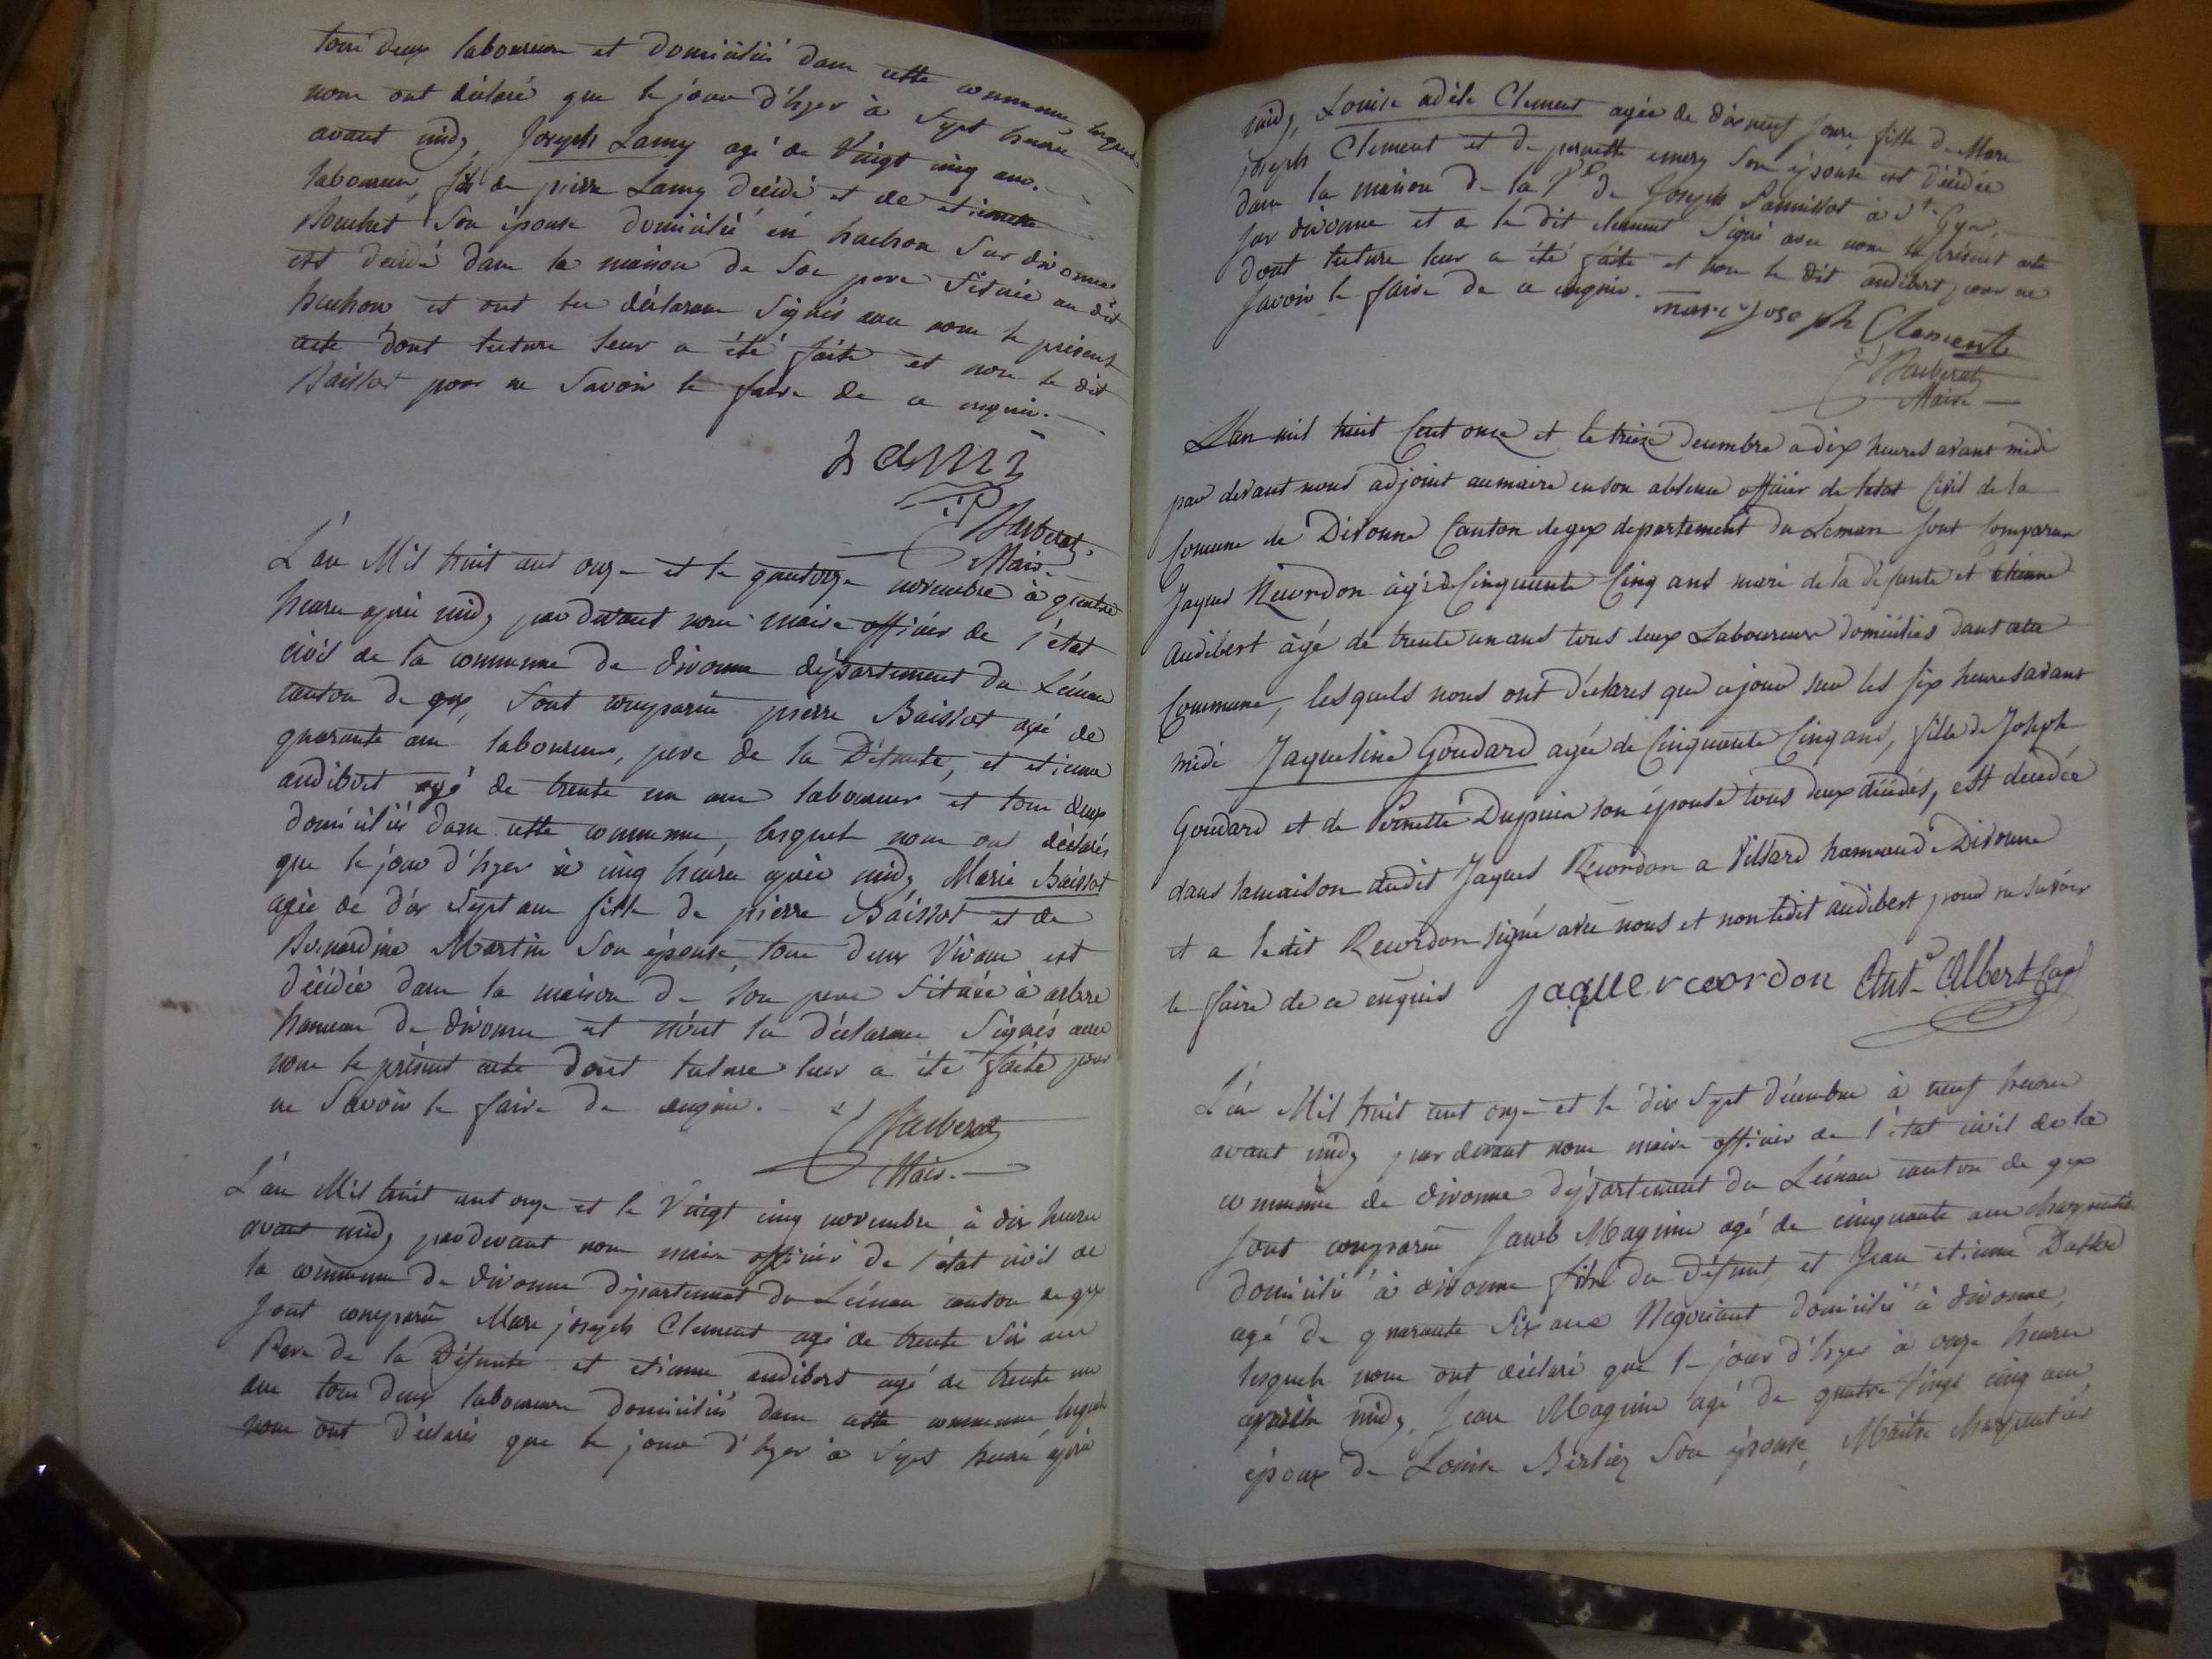 tous deux laboureurs et domiciliés dans cette commune lesquels
nous ont déclaré que le jour d'hyer à sept heures
avant midy Joseph Lamy agé de vingt cinq ans
laboureur, fils de pierre Lamy décédé et de etiennette
Bouchet son épouse domicilié en
est décédé dans la maison de son pere située au dit
et ont les déclarans signés avec nous le présent
acte dont lecture leur a été faite et non le dit
Baissot pour ne savoir le faire de ce enquis.
Lami
Barberat
Maire
L'an Mil huit cent onze et le quatorze novembre à quatre
heures après midy par devant nous maire officier de l'état
civil de la commune de divonne département du Léman
canton de gex, sont comparus pierre Baissot agé de
quarante ans laboureur, pere de la Défunte, et etienne
audibert agé de trente un ans laboureur et tous deux
domiciliés dans cette commune, lesquels nous ont déclarés
que le jour d'hyer à cinq heures après midy Marie Baissot
agée de dix sept ans fille de pierre Baissot et de
Bernardine Martin son épouse, tous deux vivans est
décédée dans la maison de son pere située à arbere
hameau de divonne et n'ont les déclarans signés avec
nous le présent acte dont lecture leur a été faite pour
ne savoir le faire de enquis.
Barberat
Maire
L'an Mil huit cent onze et le vingt cinq novembre à dix heures
avant midy pardevant nous maire officier de l'état civil de
la commune de divonne département du Léman canton de gex
sont comparus Marc joseph Clement agé de trente six ans
Pere de la Défunte et etienne audibert agé de trente un
ans tous deux laboureurs domiciliés dans cette commune lesquels
nous ont déclarés que le jour d'hyer à sept heures après
midy, Louise adèle Clement agée de dix neuf jours, fille de Marc
joseph Clement et de pernette emery son épouse est décédée
dans la maison de la de Joseph Pannissot à St. Gyx,
sur divonne et a le dit clement signé avec nous le présent acte
dont lecture leur a été faite et non le dit audibert pour ne
savoir le faire de ce enquis.
marc Joseph Clement
Barberat
Maire
L'an mil huit Cent onze et le treize decembre a dix heures avant midi
par devant nous adjoint au maire en son absence officier de letat Civil de la
Comune de Divonne Canton de gex departement du Leman sont Comparus
Jaques Recordon âgé de Cinquante Cinq ans mari de la défunte et Etienne
Audibert âgé de trente un ans tous deux Laboureurs domiciliés dans cette
Commune, lesquels nous ont déclarés que cejour sur les six heures avant
midi Jaqueline Goudard agée de Cinquante Cinq ans, fille de Joseph
Goudard et de Pernette Dupuis son épouse tous deux décédés, est decedée
dans la maison dudit Jaques Recordon a Villard hameau de Divonne
et a ledit Recordon signé avec nous et non ledit audibert pour ne savoir
le faire de ce enquis jaque rcoordon Ant. Albert
L'an Mil huit cent onze et le dix sept décembre à neuf heures
avant midy par devant nous maire officier de l'état civil de la
commune de divonne département du Léman canton de gex
sont comparus Jacob Magnin agé de cinquante ans charpentier
domicilié à divonne du Défunt, et Jean etienne
agé de quarante six ans Negociant domicilié à divonne,
lesquels nous ont déclaré que le jour d'hyer à onze heures
midy, Jean Magnin agé de quatre vingt cinq ans
époux de Louise Bertier son épouse, Maitre charpentier